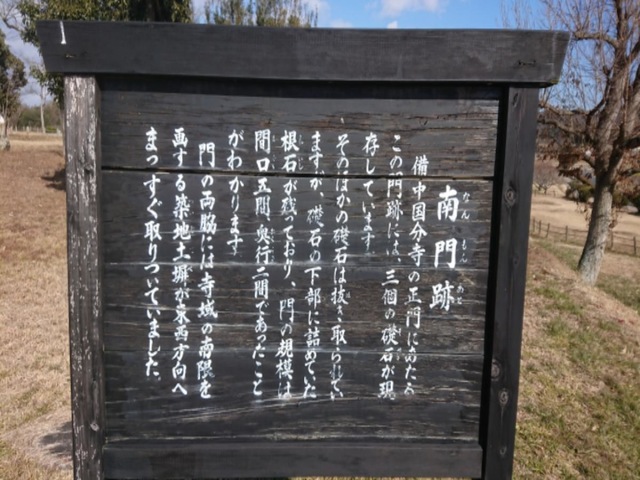 南門跡
なんもんあと
備中国分寺の正門にあたる
この門跡には、三個の礎石が現
存しています。
そのほかの礎石は抜き取られてい
ますが、礎石の下部に詰めていた
根石が残っており、門の規模は
間口五間、奥行二間であったこと
がわかります。
門の両脇には寺域の南限を
画する築地土塀が東西方向へ
まっすぐ取りついていました。